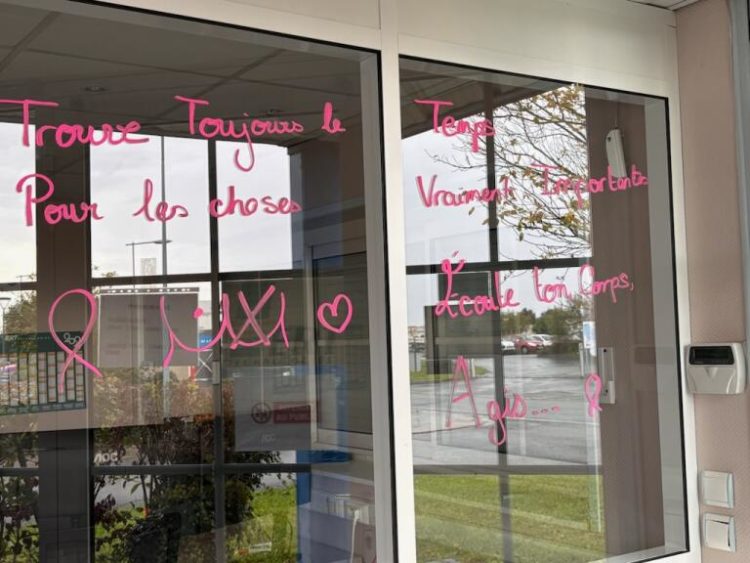 Trouve Toujours le Temps
Pour les choses Vraiment Importantes
Écoute ton Corps,
Agis...